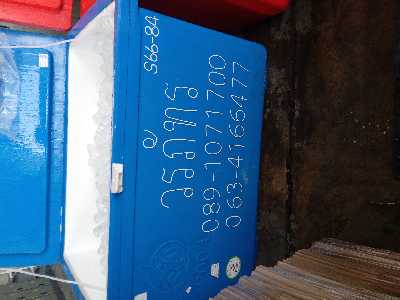 S66-84
วรภัทร
089-1071700
063-4166477